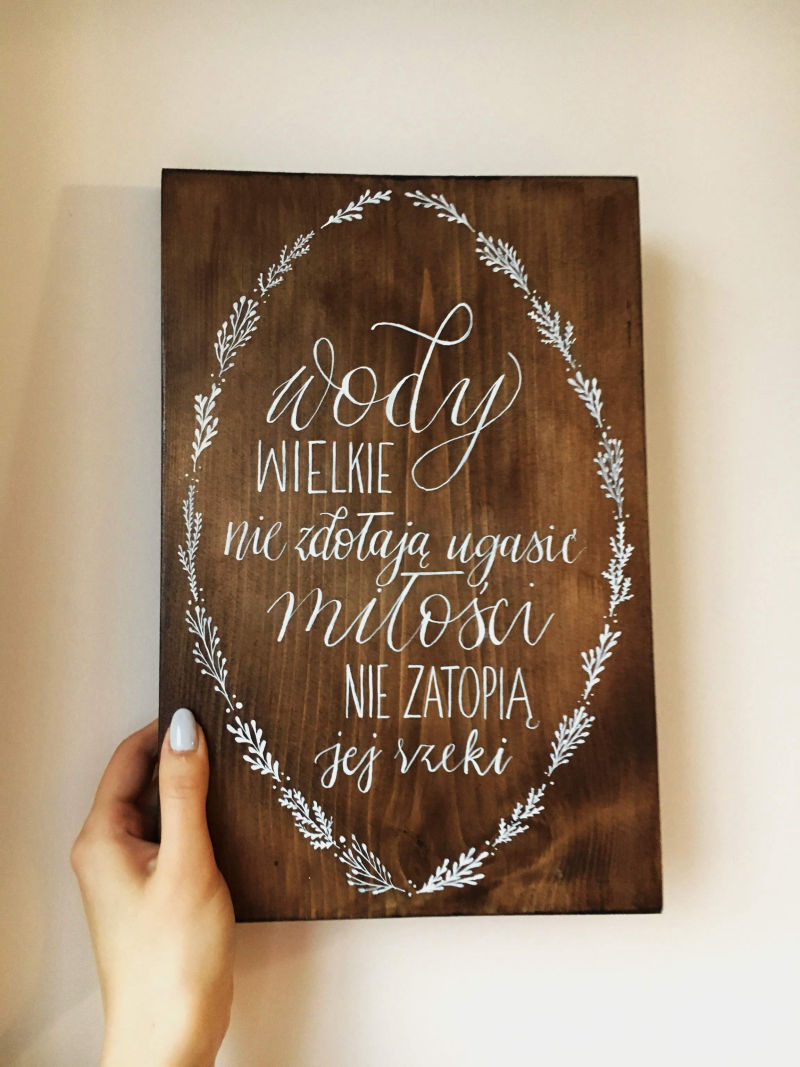 wody
WIELKIE
nie zdołają ugasić
miłości
NIE ZATOPIĄ
jej rzeki